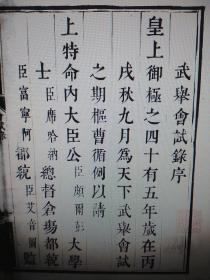 武舉會試錄序
皇上御極之四十有五年歲在丙
戌秋九月為天下武舉會試
之期樞曹循例以請
上特命內大臣公臣頗爾彭大學
士臣席哈納總督倉場都統
臣富寧阿都統臣艾音圖監